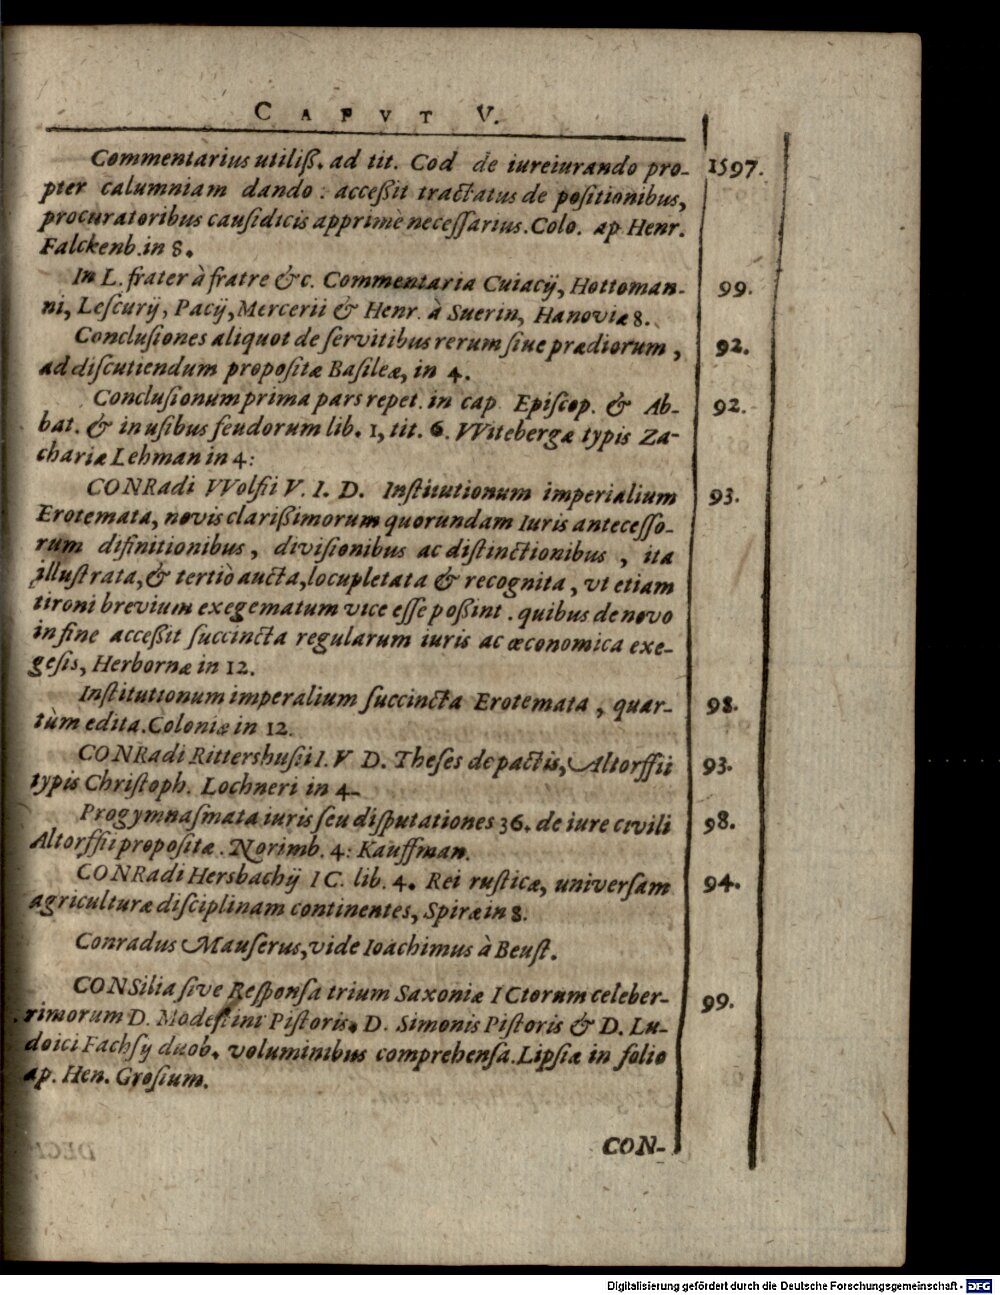 CAPVT V.
Commentarius utiliß. ad tit. Cod de iureiurando pro- 1597.
pter calumniam dando : acceßit tractatus de positionibus,
procuratoribus causidicis apprimè necessarius. Colo. ap Henr.
Falckenb. in 8.
In L. frater à fratre &c. Commentaria Cuiacij, Hottoman- 99.
ni, Lescurij, Pacij, Mercerii & Henr. à Suerin, Hanoviæ 8.
Conclusiones aliquot de servitibus rerum siue prædiorum, 92.
ad discutiendum propositæ Basileæ, in 4.
Conclusionum prima pars repet. in cap Episcop. & Ab- 92.
bat. & in usibus feudorum lib. 1, tit. 6. VVitebergæ typis Za-
chariæ Lehman in 4:
CONRadi VVolfii V. I. D. Institutionum imperialium 93.
Erotemata, novis clarißimorum quorundam Iuris antecesso-
rum difinitionibus, divisionibus ac distinctionibus, ita
illustrata, & tertiò aucta, locupletata & recognita, vt etiam
tironi brevium exegematum vice esse poßint. quibus denovo
in fine acceßit succincta regularum iuris ac œconomica exe-
gesis, Herbornæ in 12.
Institutionum imperalium succincta Erotemata, quar- 98.
tùm edita. Coloniæ in 12.
CONRadi Rittershusii I. V D. Theses de pactis, Altorffii 93.
typis Christoph. Lochneri in 4.
Progymnasmata iuris seu disputationes 36. de iure civili 98.
Altorffii propositæ. Norimb. 4: Kauffman.
CONRadi Hersbachij IC. lib. 4. Rei rusticæ, universam 94.
agriculturæ disciplinam continentes, Spiræ in 8.
Conradus Mauserus, vide Ioachimus à Beust.
CONSilia sive Responsa trium Saxoniæ ICtorum celeber- 99.
rimorum D. Modestini Pistoris. D. Simonis Pistoris & D. Lu-
doici Fachsij duob. voluminibus comprehensa. Lipsiæ in folio
ap. Hen. Grosium.
CON-
Digitalisierung gefördert durch die Deutsche Forschungsgemeinschaft - DFG